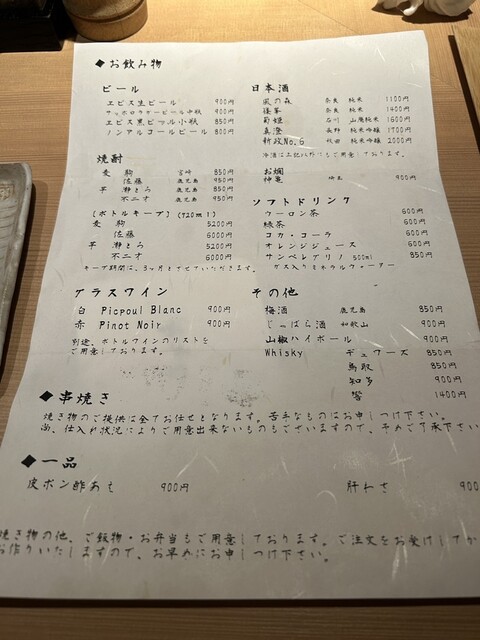 ◆お飲み物
ビール
ヱビス生ビール 900円
サッポロラガービール中瓶 900円
ヱビス黒ビール小瓶 850円
ノンアルコールビール 800円
焼酎
麦 駒 宮崎 850円
佐藤 鹿児島 950円
芋 瀞とろ 鹿児島 850円
不二才 鹿児島 950円
(ボトルキープ)(720ml)
麦 駒 5200円
佐藤 6000円
芋 瀞とろ 5200円
不二才 6000円
キープ期間は、3ヶ月とさせていただきます。
グラスワイン
白 Picpoul Blanc 900円
赤 Pinot Noir 900円
別途、ボトルワインのリストを
ご用意しております。
日本酒
風の森 奈良 純米 1100円
篠峯 奈良 純米 1400円
菊姫 石川 山廃純米 1600円
真澄 長野 純米吟醸 1700円
新政No.6 秋田 純米吟醸 2000円
冷酒は上記以外にもご用意しております。
お燗
神亀 埼玉 900円
ソフトドリンク
ウーロン茶 600円
緑茶 600円
コカ・コーラ 600円
オレンジジュース 600円
サンペレグリノ 500ml 850円
ガス入りミネラルウォーター
その他
梅酒 鹿児島 850円
じゃばら酒 和歌山 900円
山椒ハイボール 900円
Whisky デュワーズ 850円
鳥取 850円
知多 900円
響 1400円
◆串焼き
焼き物のご提供は全てお任せとなります。苦手なものはお申しつけ下さい。
尚、仕入れ状況によりご用意出来ないものもございますので、予めご了承下さい
◆一品
皮ポン酢あえ 900円
肝わさ 900
焼き物の他、ご飯物・お弁当もご用意しております。ご注文をお受けしてか
お作りいたしますので、お早めにお申しつけ下さい。